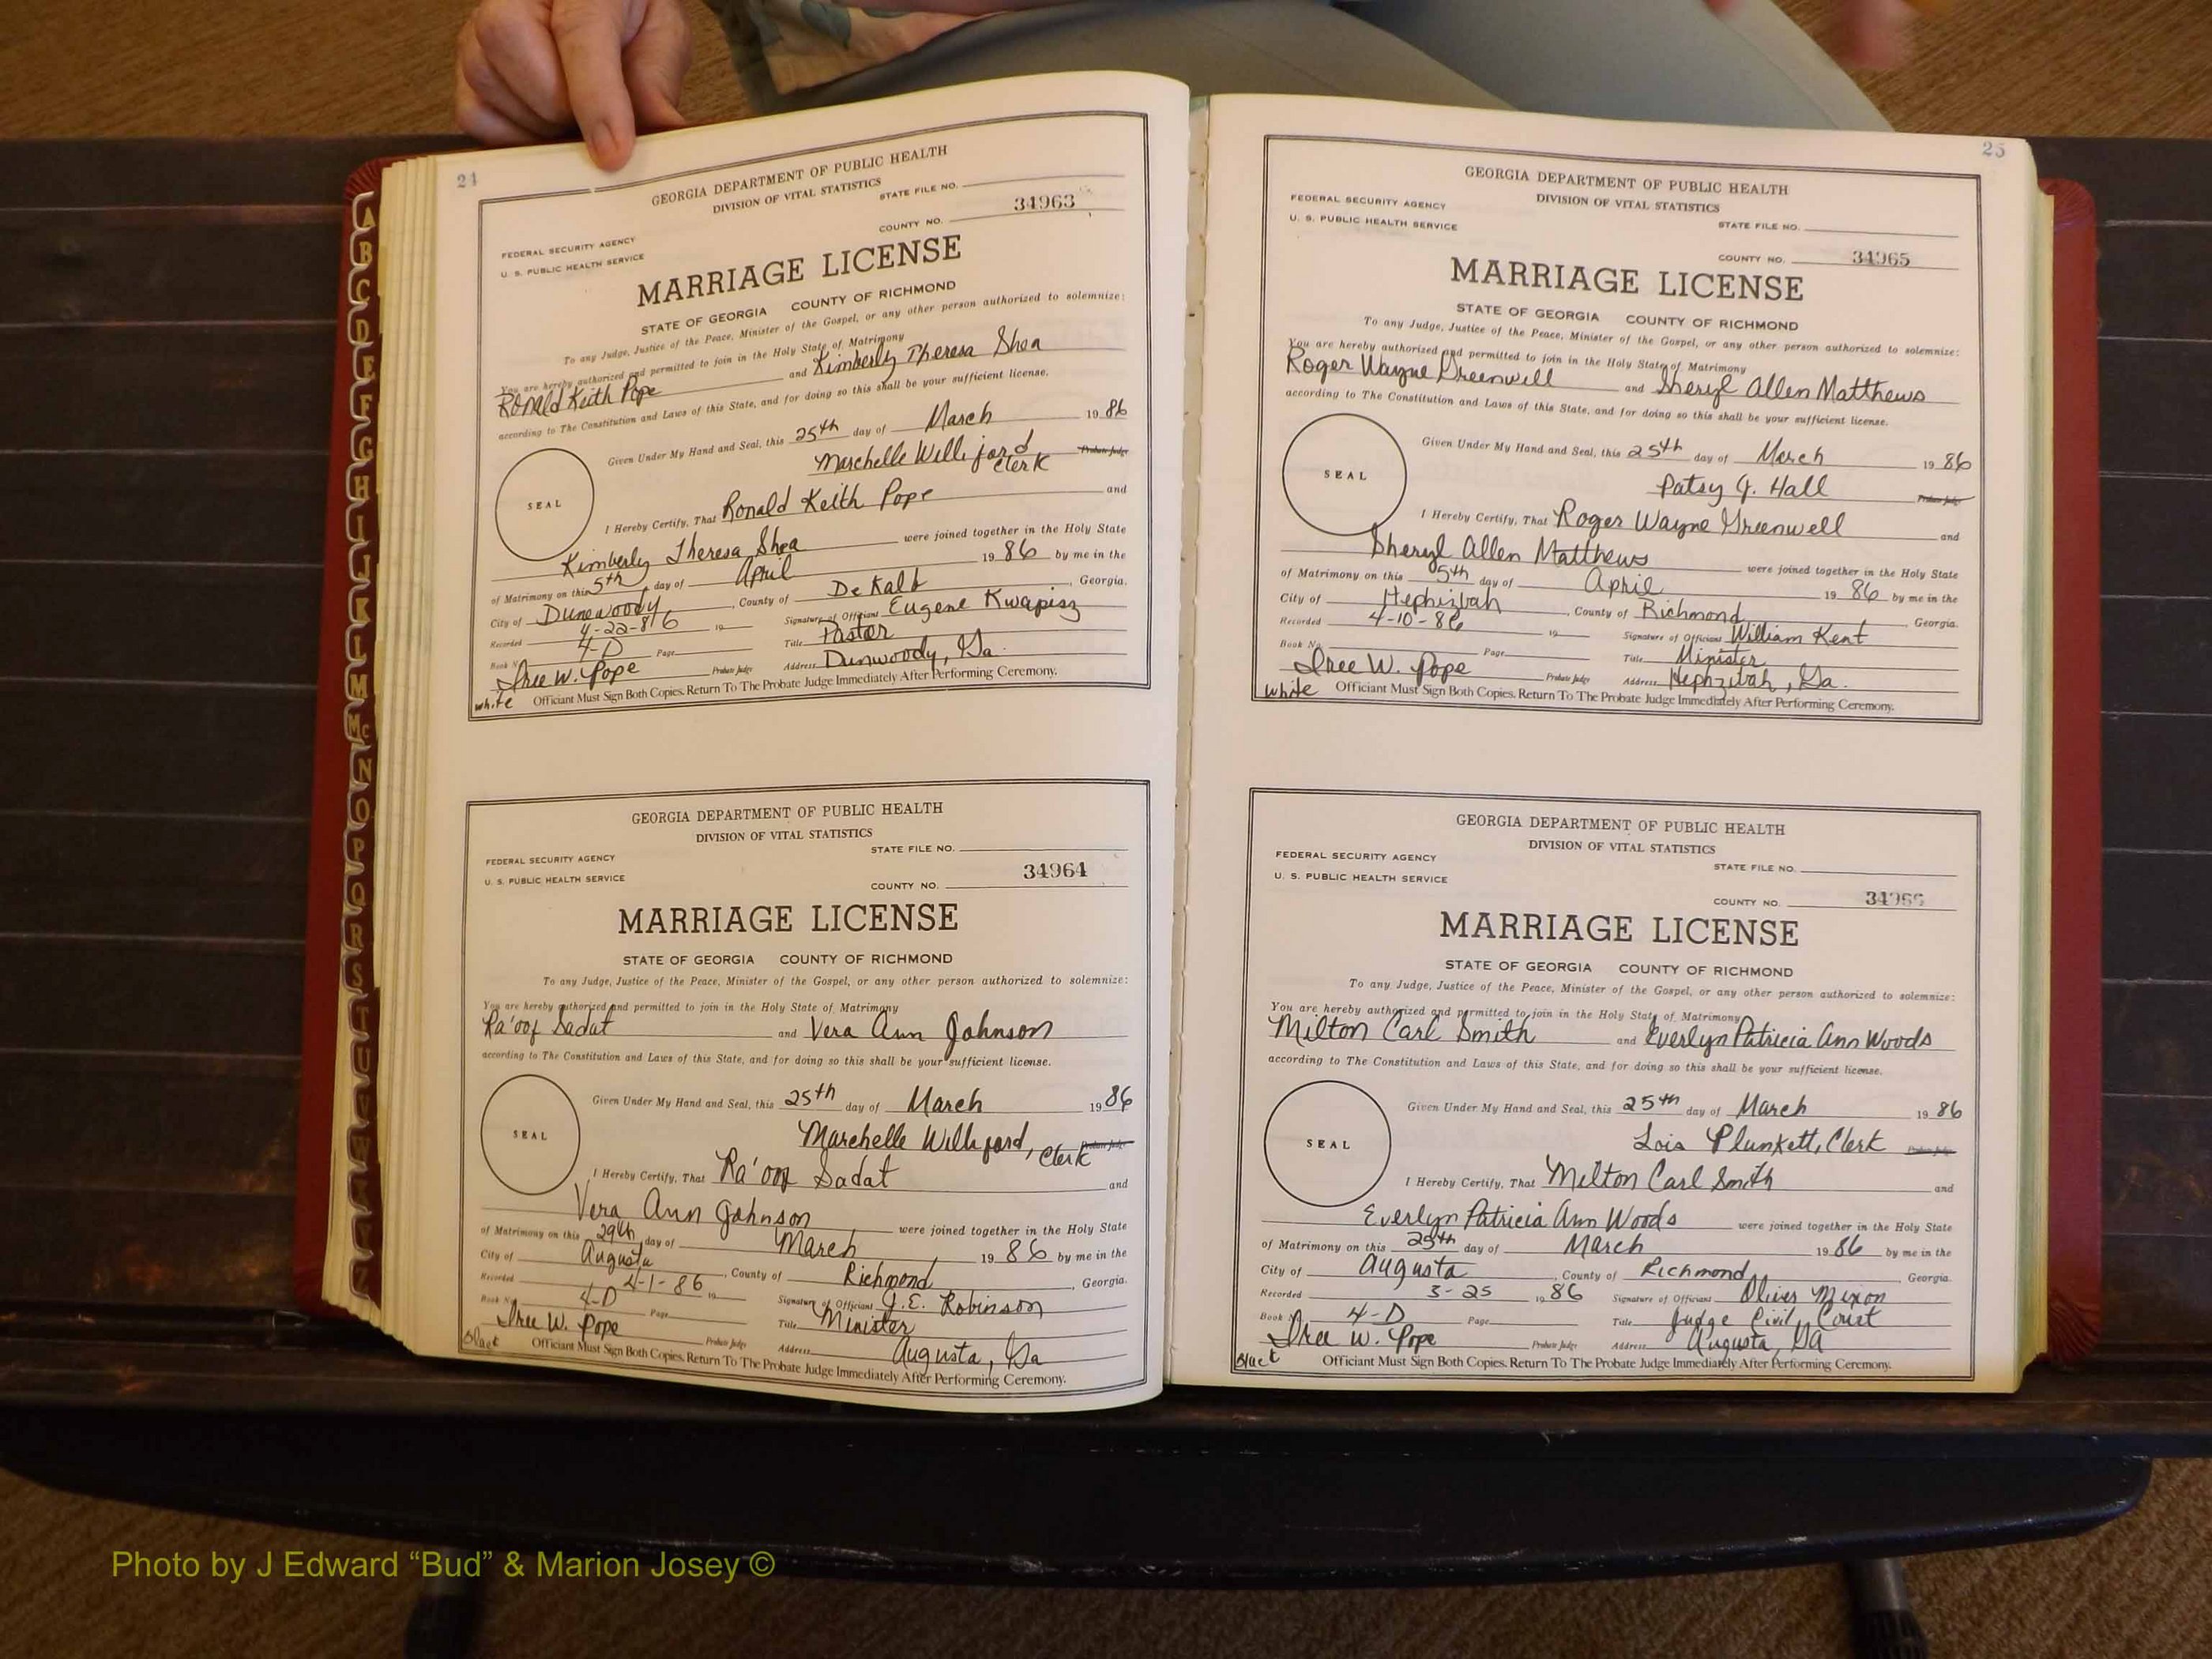 24
GEORGIA DEPARTMENT OF PUBLIC HEALTH
DIVISION OF VITAL STATISTICS
STATE FILE NO.
FEDERAL SECURITY AGENCY
U. S. PUBLIC HEALTH SERVICE
COUNTY NO. 34963
MARRIAGE LICENSE
STATE OF GEORGIA COUNTY OF RICHMOND
To any Judge, Justice of the Peace, Minister of the Gospel, or any other person authorized to solemnize:
You are hereby authorized and permitted to join in the Holy State of Matrimony
Ronald Keith Pope and Kimberly Theresa Shea
according to The Constitution and Laws of this State, and for doing so this shall be your sufficient license.
Given Under My Hand and Seal, this 25th day of March 1986
Marchelle Williford Probate Judge
Clerk
SEAL
I Hereby Certify, That Ronald Keith Pope and
Kimberly Theresa Shea were joined together in the Holy State
of Matrimony on this 5th day of April 1986 by me in the
City of Dunwoody, County of De Kalb, Georgia.
Recorded 4-22-86 19 Signature of Officiant Eugene Kwapisz
Book No. 4-D Page Title Pastor
Iree W. Pope Probate Judge Address Dunwoody, Ga.
white Officiant Must Sign Both Copies. Return To The Probate Judge Immediately After Performing Ceremony.
GEORGIA DEPARTMENT OF PUBLIC HEALTH
DIVISION OF VITAL STATISTICS
STATE FILE NO.
FEDERAL SECURITY AGENCY
U. S. PUBLIC HEALTH SERVICE
COUNTY NO. 34964
MARRIAGE LICENSE
STATE OF GEORGIA COUNTY OF RICHMOND
To any Judge, Justice of the Peace, Minister of the Gospel, or any other person authorized to solemnize:
You are hereby authorized and permitted to join in the Holy State of Matrimony
Ra'oof Sadat and Vera Ann Johnson
according to The Constitution and Laws of this State, and for doing so this shall be your sufficient license.
Given Under My Hand and Seal, this 25th day of March 1986
Marchelle Williford, Clerk Probate Judge
SEAL
I Hereby Certify, That Ra'oof Sadat and
Vera Ann Johnson were joined together in the Holy State
of Matrimony on this 29th day of March 1986 by me in the
City of Augusta, County of Richmond, Georgia.
Recorded 4-1-86 19 Signature of Officiant J.E. Robinson
Book No. 4-D Page Title Minister
Iree W. Pope Probate Judge Address Augusta, Ga
Black Officiant Must Sign Both Copies. Return To The Probate Judge Immediately After Performing Ceremony.
25
GEORGIA DEPARTMENT OF PUBLIC HEALTH
DIVISION OF VITAL STATISTICS
FEDERAL SECURITY AGENCY
U. S. PUBLIC HEALTH SERVICE
STATE FILE NO.
COUNTY NO. 34965
MARRIAGE LICENSE
STATE OF GEORGIA COUNTY OF RICHMOND
To any Judge, Justice of the Peace, Minister of the Gospel, or any other person authorized to solemnize:
You are hereby authorized and permitted to join in the Holy State of Matrimony
Roger Wayne Greenwell and Sheryl Allen Matthews
according to The Constitution and Laws of this State, and for doing so this shall be your sufficient license.
Given Under My Hand and Seal, this 25th day of March 1986
Patsy J. Hall Probate Judge
SEAL
I Hereby Certify, That Roger Wayne Greenwell and
Sheryl Allen Matthews were joined together in the Holy State
of Matrimony on this 5th day of April 1986 by me in the
City of Hephizbah, County of Richmond Georgia.
Recorded 4-10-86 19 Signature of Officiant William Kent
Book No. Page Title Minister
Iree W. Pope Probate Judge Address Hephzibah, Ga.
white Officiant Must Sign Both Copies. Return To The Probate Judge Immediately After Performing Ceremony.
GEORGIA DEPARTMENT OF PUBLIC HEALTH
DIVISION OF VITAL STATISTICS
FEDERAL SECURITY AGENCY
U. S. PUBLIC HEALTH SERVICE
STATE FILE NO.
COUNTY NO. 34966
MARRIAGE LICENSE
STATE OF GEORGIA COUNTY OF RICHMOND
To any Judge, Justice of the Peace, Minister of the Gospel, or any other person authorized to solemnize:
You are hereby authorized and permitted to join in the Holy State of Matrimony
Milton Carl Smith and Everlyn Patricia Ann Woods
according to The Constitution and Laws of this State, and for doing so this shall be your sufficient license.
Given Under My Hand and Seal, this 25th day of March 1986
Lois Plunkett, Clerk Probate Judge
SEAL
I Hereby Certify, That Milton Carl Smith and
Everlyn Patricia Ann Woods were joined together in the Holy State
of Matrimony on this 25th day of March 1986 by me in the
City of Augusta, County of Richmond, Georgia.
Recorded 3-25 1986 Signature of Officiant Oliver Mixon
Book No. 4-D Page Title Judge Civil Court
Iree W. Pope Probate Judge Address Augusta, GA
Black Officiant Must Sign Both Copies. Return To The Probate Judge Immediately After Performing Ceremony.
A
B
C
D
E
F
G
H
I
J
K
L
M
Mc
N
O
P
Q
R
S
T
U
V
W
Photo by J Edward “Bud” & Marion Josey ©